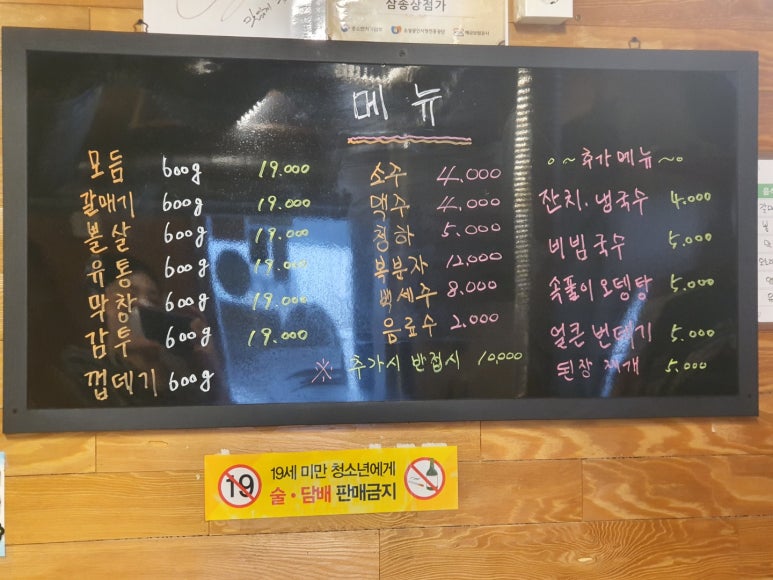 삼송상점가
메뉴
모듬 600g 19.000
갈매기 600g 19.000
볼살 600g 19.000
유통 600g 19.000
막창 600g 19.000
감투 600g 19.000
껍데기 600g
소주 4,000
맥주 4,000
청하 5.000
복분자 12,000
백세주 8.000
음료수 2.000
※ 추가시 반접시 10,000
○~추가메뉴~○
잔치.냉국수 4.000
비빔국수 5.000
속풀이 오뎅탕 5.000
얼큰 번데기 5.000
된장찌개 5.000
19
19세 미만 청소년에게
술·담배 판매금지